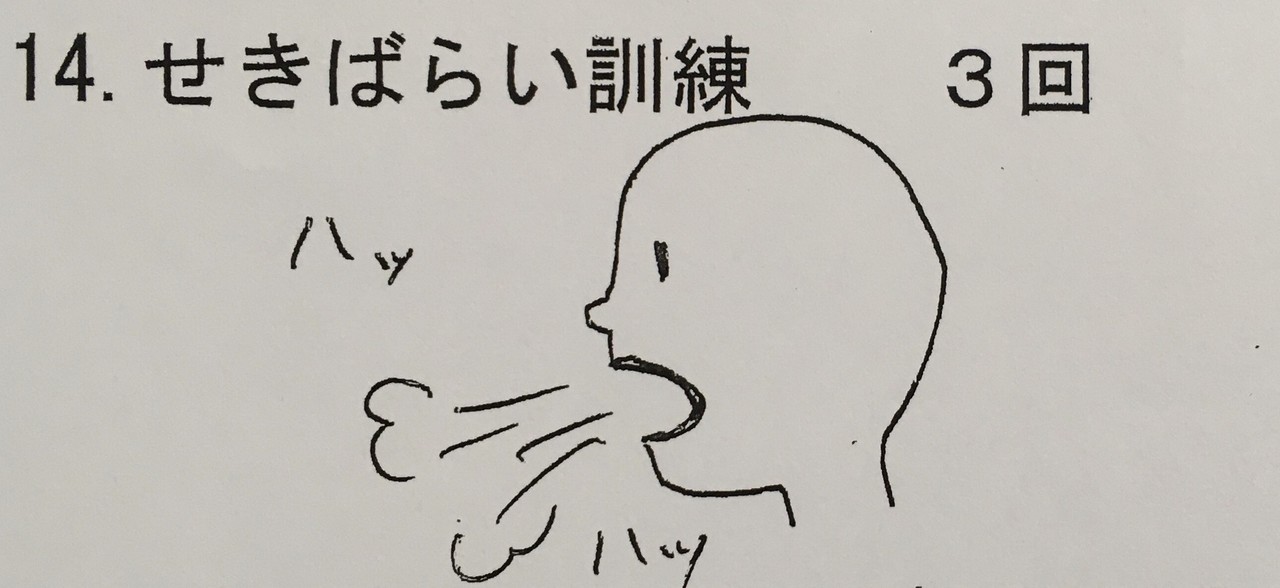 14. せきばらい訓練　3回
ハッ
ハッ